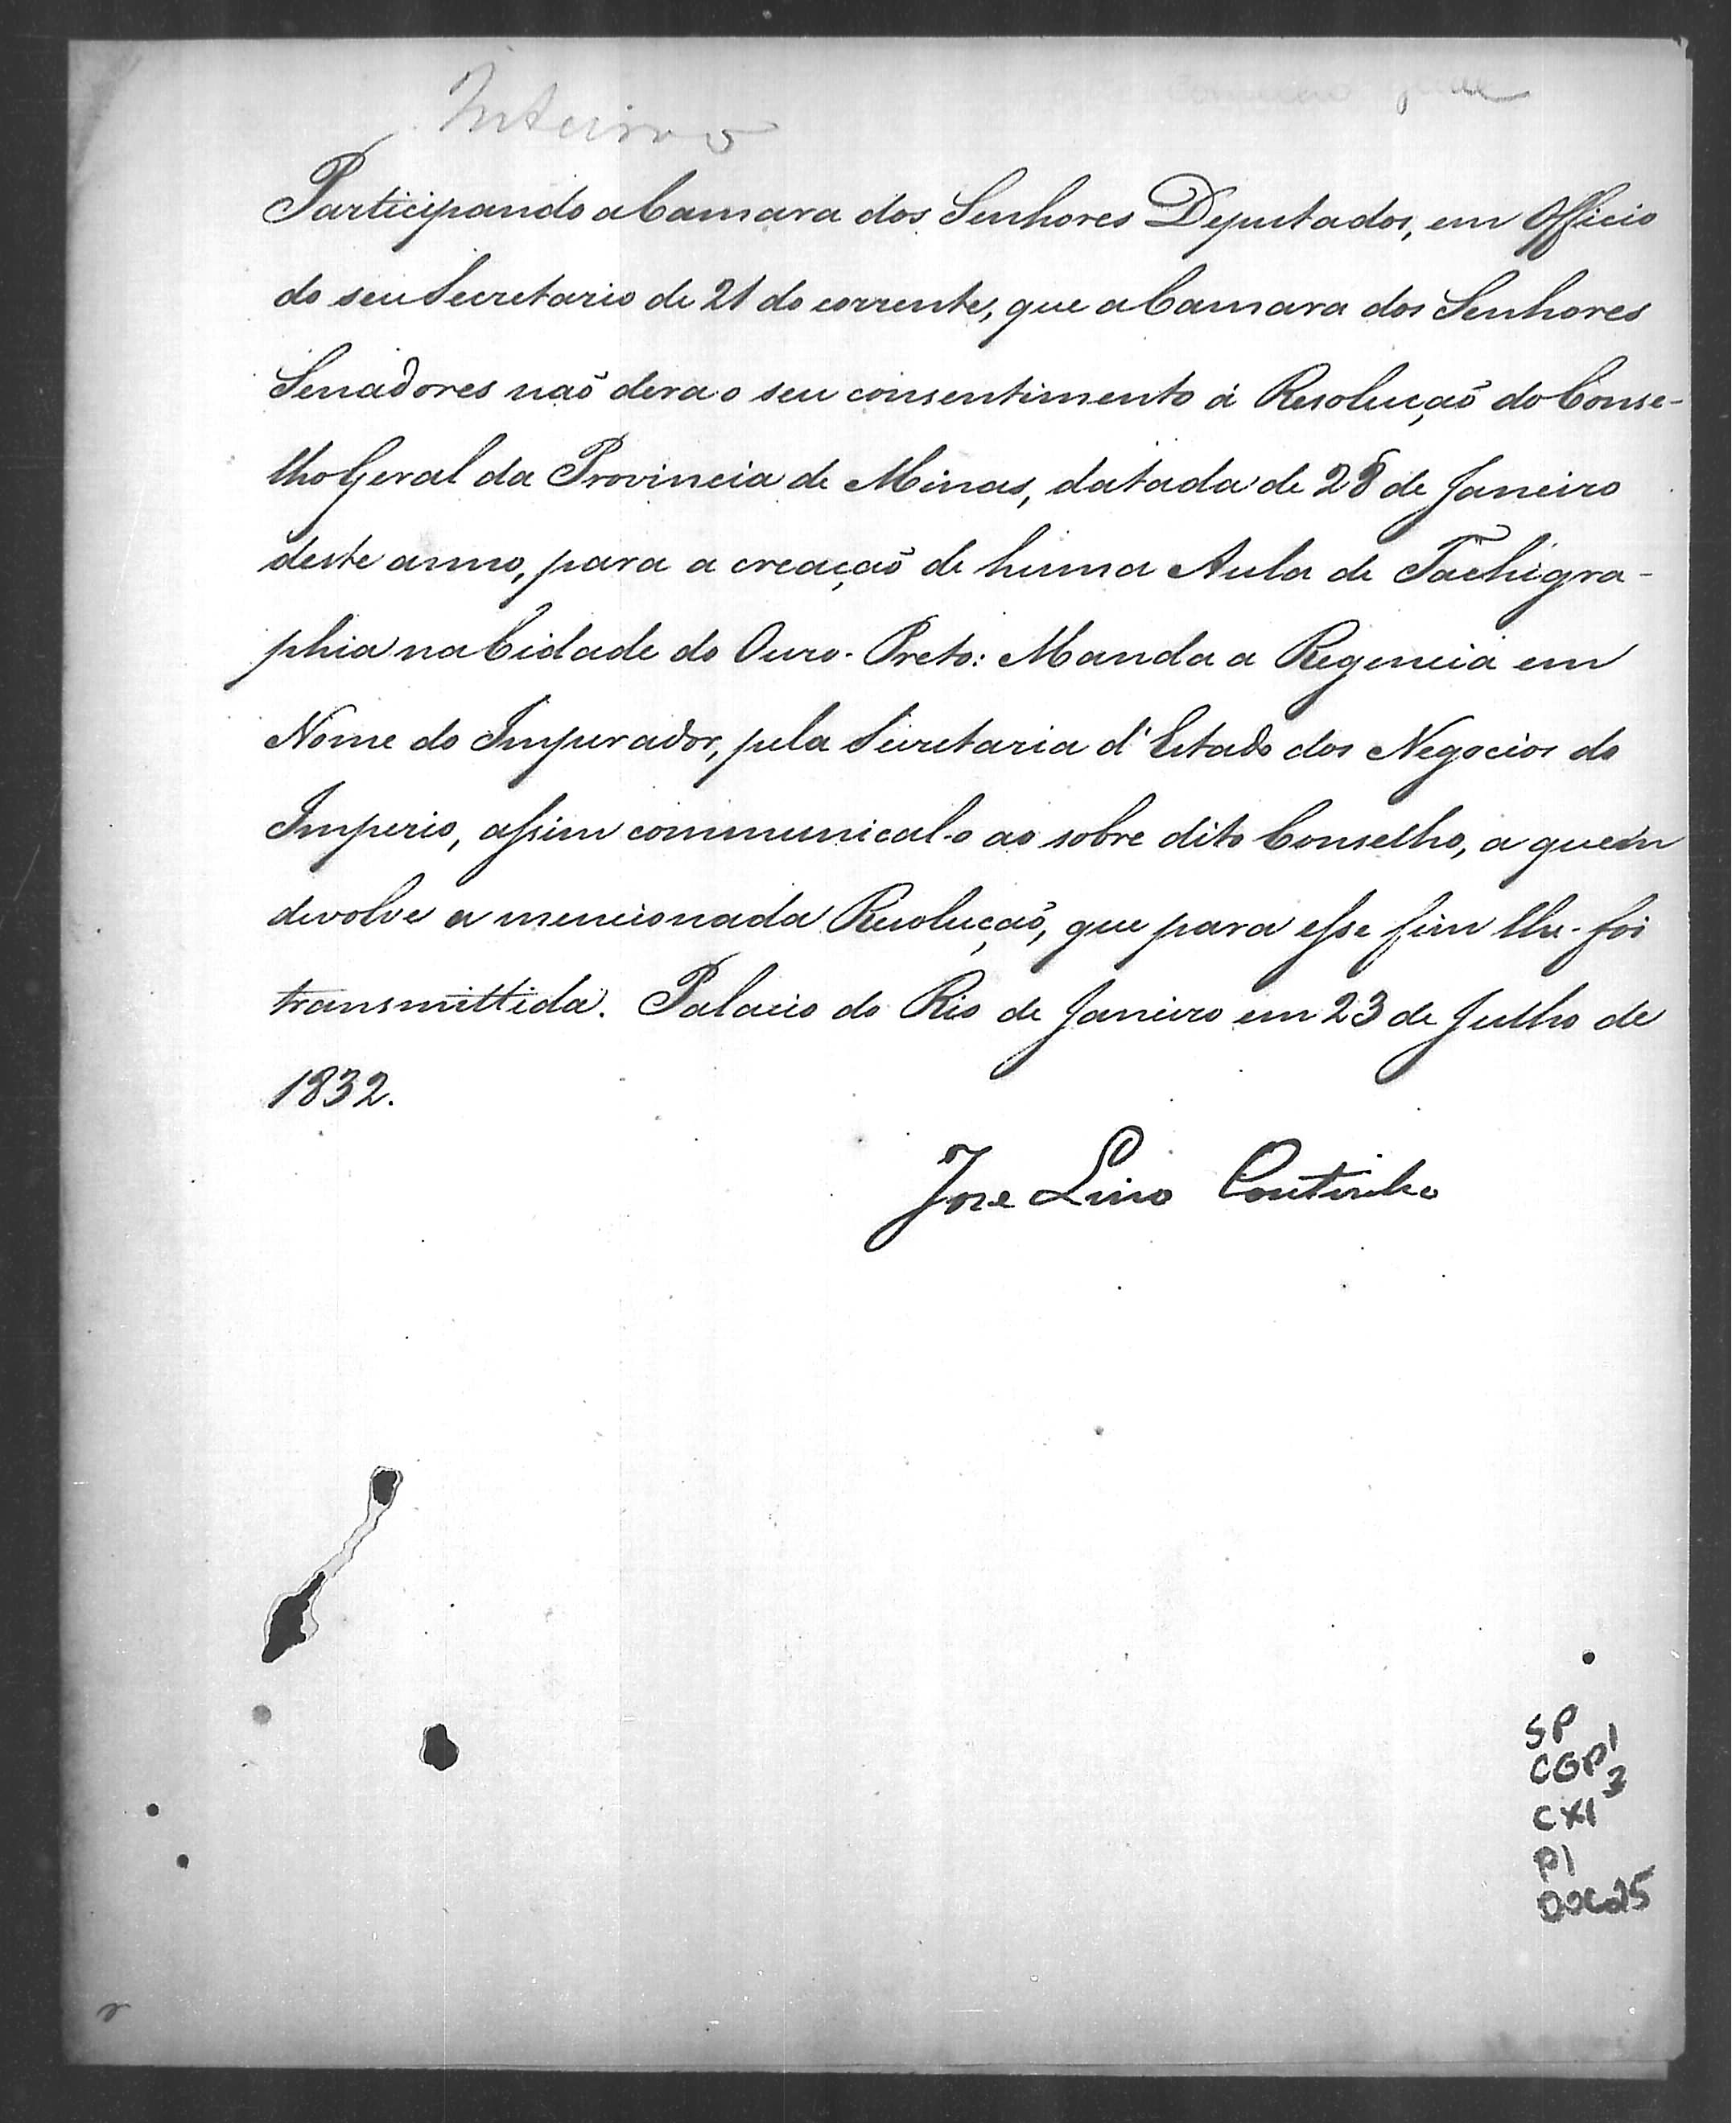 Inteirado
Participando a Camara dos Senhores Deputados, em Officio
do seu Secretario de 21 do corrente, que a Camara dos Senhores
Senadores naõ dera o seu consentimento á Resoluçaõ do Conse-
lho Geral da Provincia de Minas, datada de 28 de Janeiro
deste anno, para a creaçaõ de huma Aula de Tachigra-
phia na Cidade do Ouro-Preto: Manda a Regencia em
Nome do Imperador, pela Secretaria d'Estado dos Negocios do
Imperio, assim communical-o ao sobre dito Conselho, a quem
devolve a mencionada Resoluçaõ, que para esse fim lhe-foi
transmittida. Palacio do Rio de Janeiro em 23 de Julho de
1832.
Jose Lino Coutinho
SP
CGP1
3
CX1
P1
DOC25